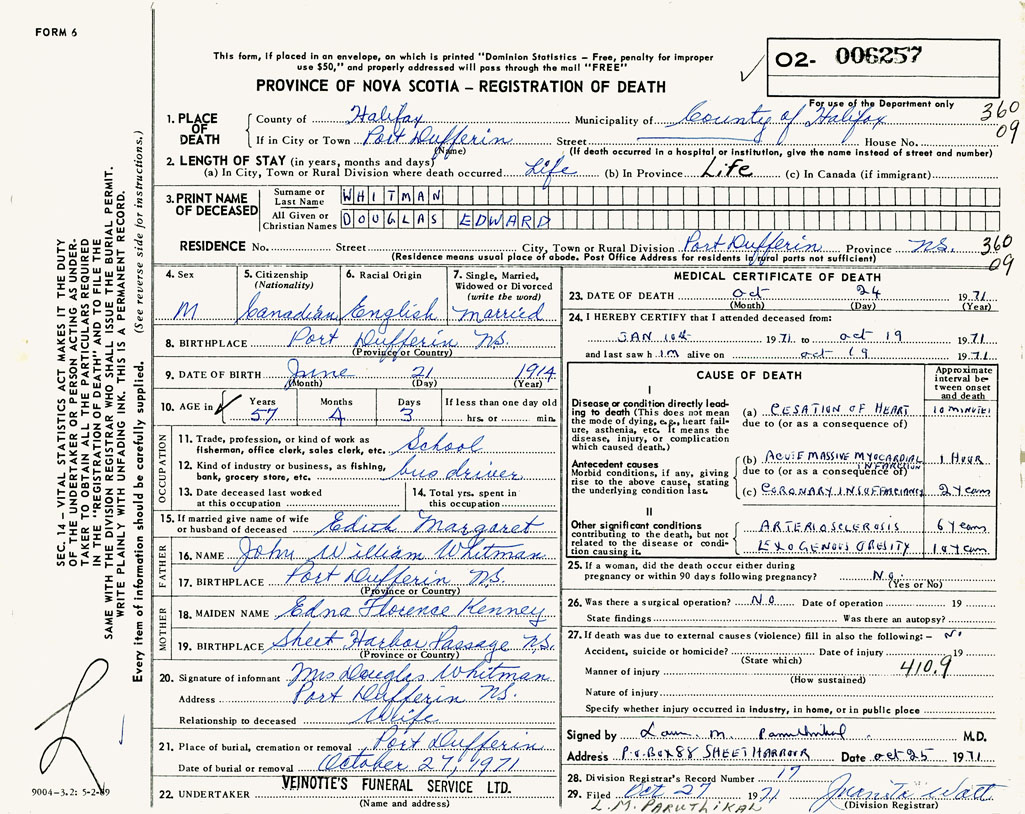 FORM 6
This form, if placed in an envelope, on which is printed "Dominion Statistics – Free, penalty for improper
use $50," and properly addressed will pass through the mail "FREE"
02- 006257
PROVINCE OF NOVA SCOTIA – REGISTRATION OF DEATH
For use of the Department only
360
09
1. PLACE OF DEATH
County of Halifax Municipality of County of Halifax
If in City or Town Port Dufferin Street House No.
(Name) (If death occurred in a hospital or institution, give the name instead of street and number)
2. LENGTH OF STAY (in years, months and days)
(a) In City, Town or Rural Division where death occurred Life (b) In Province Life (c) In Canada (if immigrant)
3. PRINT NAME OF DECEASED
Surname or Last Name WHITMAN
All Given or Christian Names DOUGLAS EDWARD
RESIDENCE No. Street City, Town or Rural Division Port Dufferin Province N.S. 360
(Residence means usual place of abode. Post Office Address for residents in rural parts not sufficient) 09
4. Sex M
5. Citizenship (Nationality) Canadian
6. Racial Origin English
7. Single, Married, Widowed or Divorced (write the word) Married
8. BIRTHPLACE Port Dufferin N.S.
(Province or Country)
9. DATE OF BIRTH June 21 1914
(Month) (Day) (Year)
10. AGE in Years Months Days If less than one day old
57 4 3 hrs. or min.
OCCUPATION
11. Trade, profession, or kind of work as
fisherman, office clerk, sales clerk, etc. School
12. Kind of industry or business, as fishing,
bank, grocery store, etc. bus driver
13. Date deceased last worked
at this occupation
14. Total yrs. spent in
this occupation
15. If married give name of wife
or husband of deceased Edith Margaret
FATHER
16. NAME John William Whitman
17. BIRTHPLACE Port Dufferin N.S.
(Province or Country)
MOTHER
18. MAIDEN NAME Edna Florence Kenney
19. BIRTHPLACE Sheet Harbor Passage N.S.
(Province or Country)
20. Signature of informant Mrs Douglas Whitman
Address Port Dufferin N.S.
Relationship to deceased Wife
21. Place of burial, cremation or removal Port Dufferin
Date of burial or removal October 27, 1971
22. UNDERTAKER VEINOTTE'S FUNERAL SERVICE LTD.
(Name and address)
MEDICAL CERTIFICATE OF DEATH
23. DATE OF DEATH oct 24 1971
(Month) (Day) (Year)
24. I HEREBY CERTIFY that I attended deceased from:
JAN 10th 1971 to oct 19 1971
and last saw him alive on oct 19 1971
CAUSE OF DEATH
Approximate interval between onset and death
I
Disease or condition directly leading to death (This does not mean the mode of dying, e.g., heart failure, asthenia, etc. It means the disease, injury, or complication which caused death.)
(a) CESATION OF HEART 10 MINUTES
due to (or as a consequence of)
Antecedent causes
Morbid conditions, if any, giving rise to the above cause, stating the underlying condition last.
(b) ACUTE MASSIVE MYOCARDIAL INFARCTION 1 HOUR
due to (or as a consequence of)
(c) CORONARY INSUFFICIENCY 2 Years
II
Other significant conditions
contributing to the death, but not related to the disease or condition causing it.
ARTERIOSCLEROSIS 6 Years
EXOGENOUS OBESITY 10 Years
25. If a woman, did the death occur either during
pregnancy or within 90 days following pregnancy? No
(Yes or No)
26. Was there a surgical operation? NO Date of operation 19
State findings Was there an autopsy?
27. If death was due to external causes (violence) fill in also the following: – No
Accident, suicide or homicide? Date of injury 19
(State which)
Manner of injury 410.9
(How sustained)
Nature of injury
Specify whether injury occurred in industry, in home, or in public place
Signed by M. M.D.
Address P.O. BOX 88 SHEET HARBOUR Date oct 25 1971
28. Division Registrar's Record Number 17
29. Filed Oct 27 1971 Juanita Watt
L.M. PARUTHIKAL (Division Registrar)
SEC. 14 – VITAL STATISTICS ACT MAKES IT THE DUTY
OF THE UNDERTAKER OR PERSON ACTING AS UNDERTAKER
TO OBTAIN ALL THE PARTICULARS REQUIRED
IN THE "REGISTRATION OF DEATH" AND TO FILE THE
SAME WITH THE DIVISION REGISTRAR WHO SHALL ISSUE THE BURIAL PERMIT.
WRITE PLAINLY WITH UNFADING INK. THIS IS A PERMANENT RECORD.
Every item of information should be carefully supplied. (See reverse side for instructions.)
9004-3.2: 5-2-69